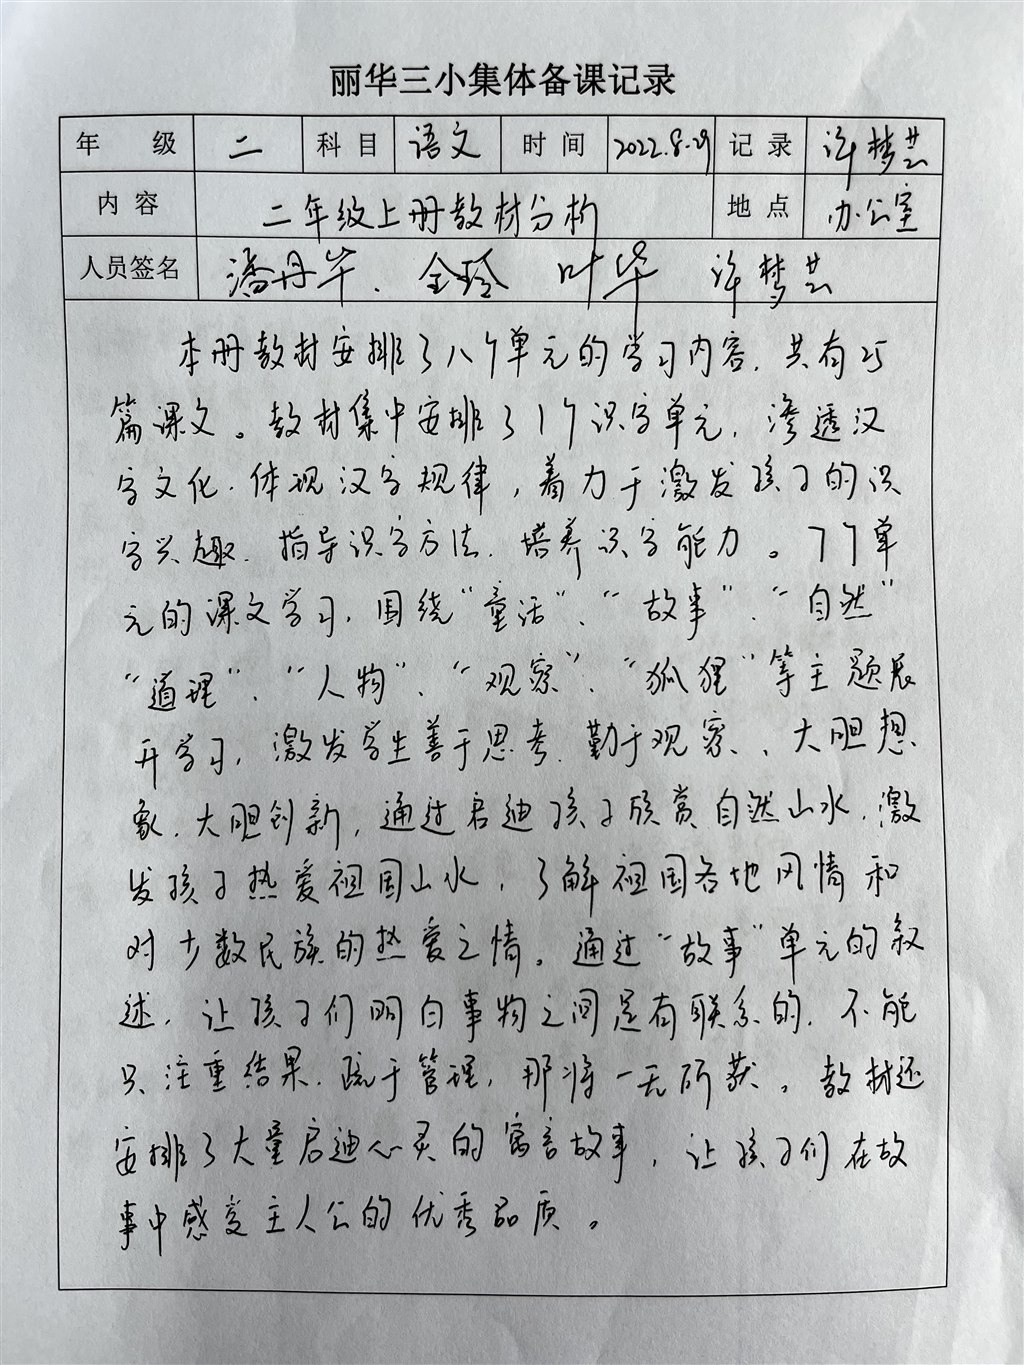 丽华三小集体备课记录
年 级 二 科 目 语文 时 间 2022.8.29 记 录 许梦芸
内 容 二年级上册教材分析 地 点 办公室
人员签名 潘丹华、金玲 叶华 许梦芸
本册教材安排了八个单元的学习内容,共有25
篇课文。教材集中安排了1个识字单元,渗透汉
字文化.体现汉字规律,着力于激发孩子的识
字兴趣.指导识字方法.培养识字能力。7个单
元的课文学习,围绕“童话”、“故事”、“自然”
“道理”、“人物”、“观察”、“狐狸”等主题展
开学习,激发学生善于思考.勤于观察、大胆想
象.大胆创新,通过启迪孩子欣赏自然山水.激
发孩子热爱祖国山水,了解祖国各地风情和
对少数民族的热爱之情。通过“故事”单元的叙
述,让孩子们明白事物之间是有联系的.不能
只注重结果.疏于管理,那将一无所获。教材还
安排了大量启迪心灵的寓言故事,让孩子们在故
事中感受主人公的优秀品质。